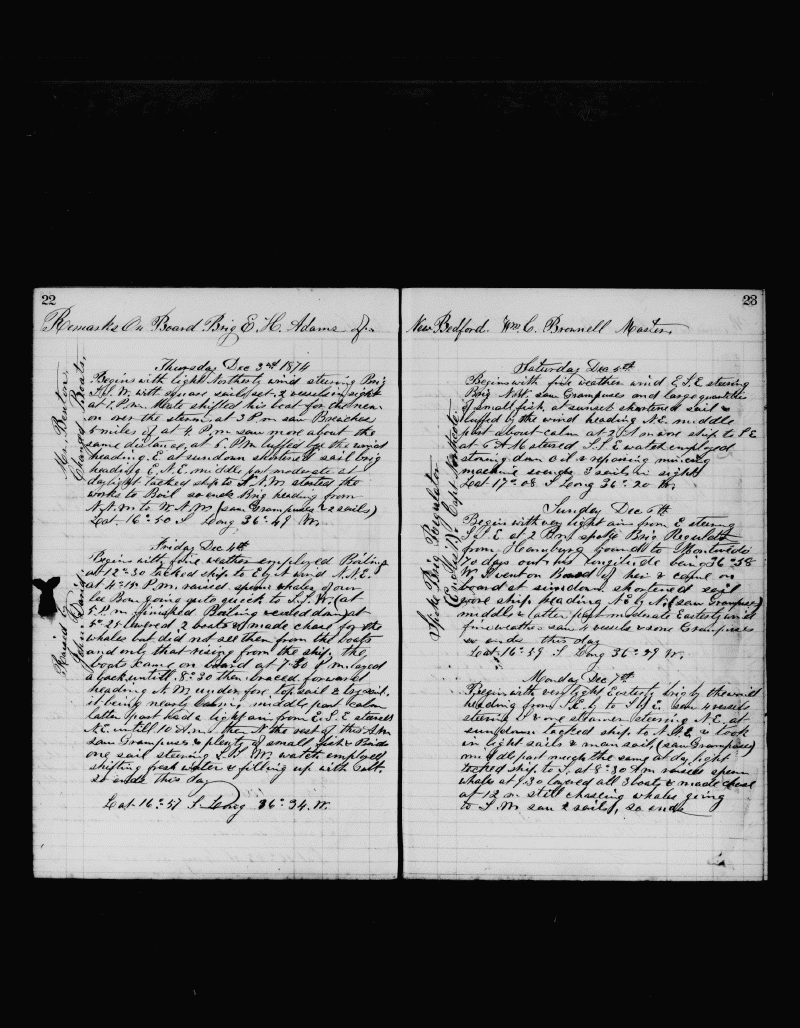 22
Remarks On Board Brig E. H. Adams of
Mr. Benton
Changed Boats,
Thursday Dec 3rd 1874
Begins with light Northerly wind steering Brig
S.S.W. with square sails set. 2 vessels in sight
at 1. P.m. Mate shifted his boat for the new
on over the stern, at 3 P.m saw Breaches
5 miles off at 4 P.m saw more about the
same distance, at 5. P.m luffed by the wind
heading E. at sundown shortened sail brig
heading E.N.E. middle part moderate at
daylight tacked ship to S.N.M started the
works to Boil so ends Brig heading from
to W.N.W (saw Grampuses & 2 sails)
Lat 16°.50 S Long 36°.49 W.
Raised by
John David
Friday Dec 4th
Begins with fine weather employed Boiling
at 12-30 tacked ship to wind N.N.E.
at 4-15 P.m. raised sperm whales of our
lee Bow going quick to S.S.W. (at
5. P.m. finished Boiling at
5-25 lowered 2 boats & made chase for the
whales but did not see them from the boats
and only that rising from the ship. the
boats came on board at 7-30 P m. layed
aback untill 8-30 then braced forward
heading N.W. under fore top sail &
it being nearly calm, middle part calm
latter part had a light air from E.S.E steered
N.E. untill 10 A.m. then N the rest of this A.m
saw Grampuses & plenty of small fish & Birds
one sail steering S.S.W. watch employed
shifting fresh water & filling up with salt.
so ends this day
Lat 16°.57 S Long 36°.34. W.
23
New Bedford. Wm C. Brownell Master,
Saturday Dec 5th
Begins with fine weather wind E.S.E steering
Brig saw Grampuses and large quantities
of small fish, at sunset shortened sail &
luffed by the wind heading N.E. middle
part about calm at 2 A m wore ship to S.E
at 6 A M steered S.S.E watch employed
stowing down oil & repairing mincing
machine so ends 3 sails in sight
Lat 17°.08 S Long 36°.20 W.
Spoke Brig Regulator
Capt
Sunday Dec 6th
Begins with very light air from E steering
S.S.E. at 2 P.m. spoke Brig Regulator
from Hamburg bound to Montevideo
70 days out his longitude being 36°.58
W. I went on Board of her & came on
board at sundown shortened sail
wore ship heading N.E by N. (saw Grampuses)
middle & latter part moderate Easterly wind
fine weather saw 4 vessels & some Grampuses
so ends this day
Lat 16°.59 S Long 36°.29 W.
Monday Dec 7th
Begins with very light Easterly brig by the wind
heading from S.E. by to saw 4 vessels
steering & one steamer steering N.E. at
sundown tacked ship to & took
in light sails & main sail (saw Grampuses)
middle part much the same at day light
tacked ship to S. at 8-30 A m raised sperm
whales at 9.30 lowered all 3 boats & made chase
at 12 m. still chasing whales going
to S.W. saw 2 sails, so ends